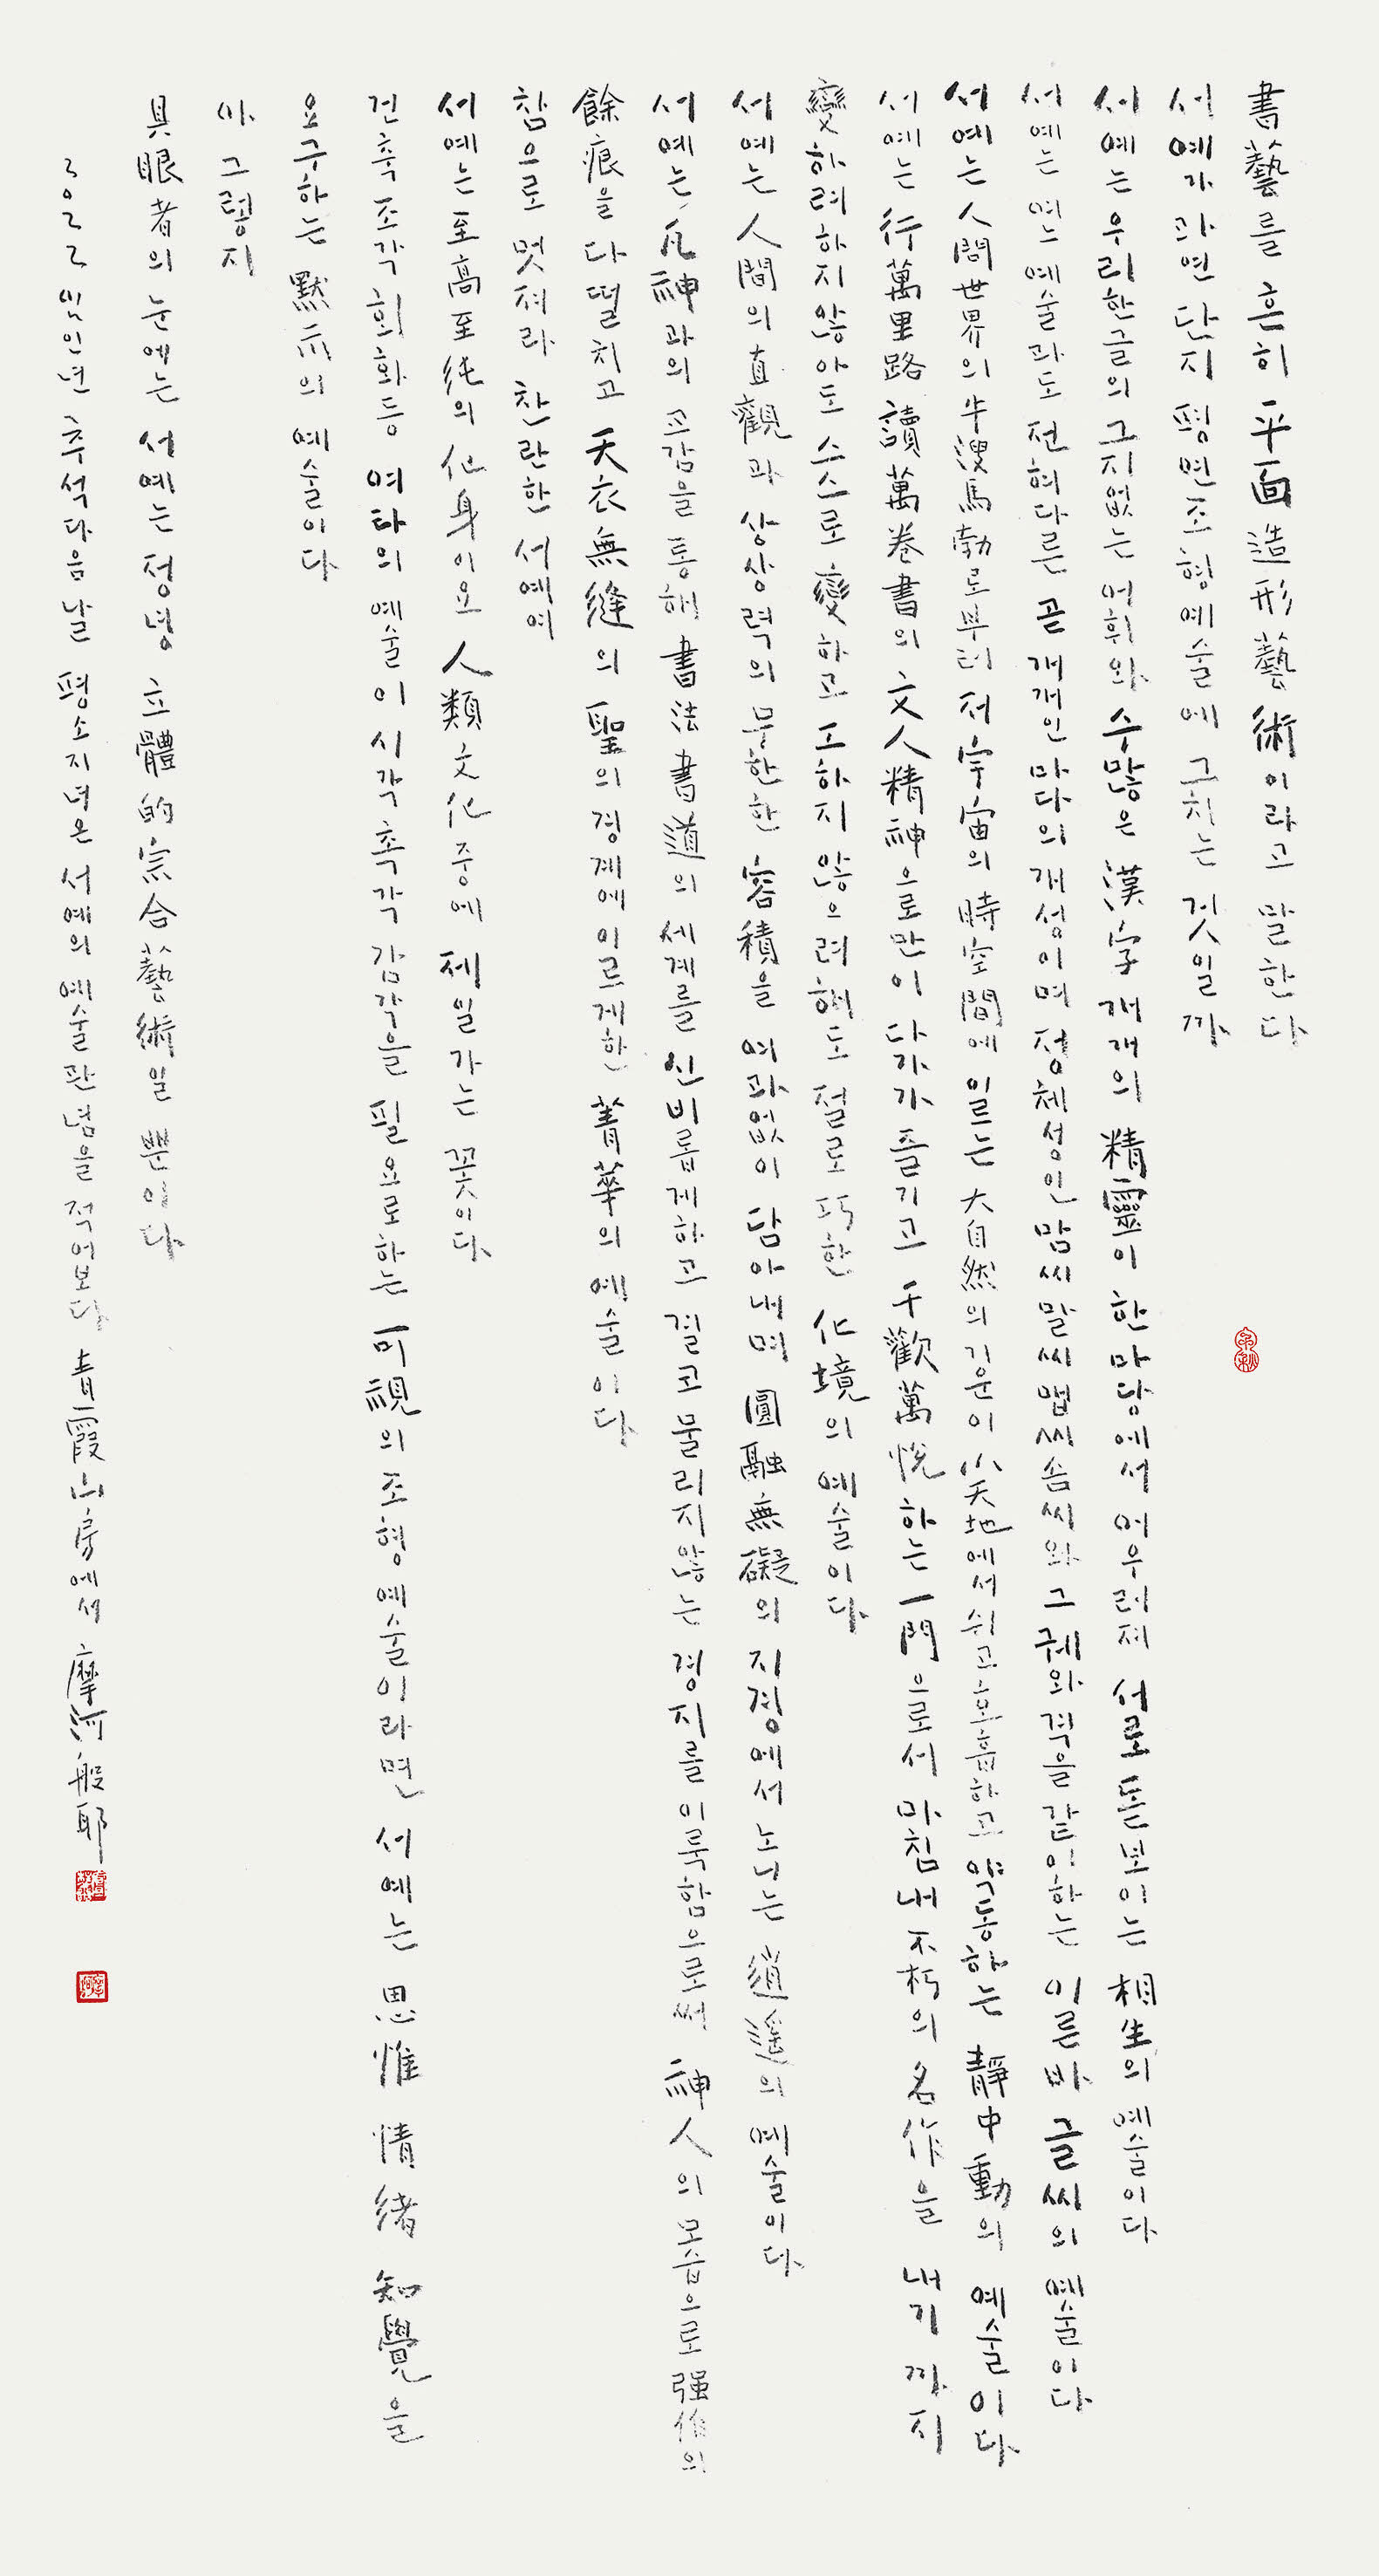 書藝를 흔히 平面造形藝術이라고 말한다
서예가 과연 단지 평면조형예술에 그치는 것일까
서예는 우리한글의 그지없는 어휘와 수많은 漢字 개개의 精靈이 한마당에서 어우러져 서로 돋보이는 相生의 예술이다
서예는 여느 예술과도 전혀다른 곧 개개인마다의 개성이며 정체성인 맘씨 말씨 맵씨 솜씨와 그 궤와 격을 같이하는 이른바 글씨의 예술이다
서예는 人間世界의 牛溲馬勃로부터 저 宇宙의 時空間에 일르는 大自然의 기운이 小天地에서 쉬고 호흡하고 약동하는 靜中動의 예술이다
서예는 行萬里路 讀萬卷書의 文人精神으로만이 다가가 즐기고 千歡萬悅하는 一門으로서 마침내 不朽의 名作을 내기까지
變하려하지 않아도 스스로 變하고 도하지 않으려해도 절로 巧한 化境의 예술이다
서예는 人間의 直觀과 상상력의 무한한 容積을 여과없이 담아내며 圓融無礙의 지경에서 노니는 逍遙의 예술이다
서예는 凡神과의 교감을 통해 書法書道의 세계를 신비롭게하고 질고 물리지않는 경지를 이룩함으로써 神人의 모습으로 强作의
餘痕을 다 떨치고 天衣無縫의 聖의 경계에 이르게한 菁華의 예술이다
참으로 멋져라 찬란한 서예여
서예는 至高至純의 化身이요 人類文化중에 제일가는 꽃이다
건축 조각 회화등 여타의 예술이 시각 촉각 감각을 필요로하는 可視의 조형예술이라면 서예는 思惟 情緖 知覺을
요구하는 默示의 예술이다
아 그렇지
具眼者의 눈에는 서예는 정녕 立體的 宗合藝術일 뿐이다
2022 임인년 추석다음날 평소지녀온 서예의 예술관념을 적어보다 靑霞山房에서 摩河般耶